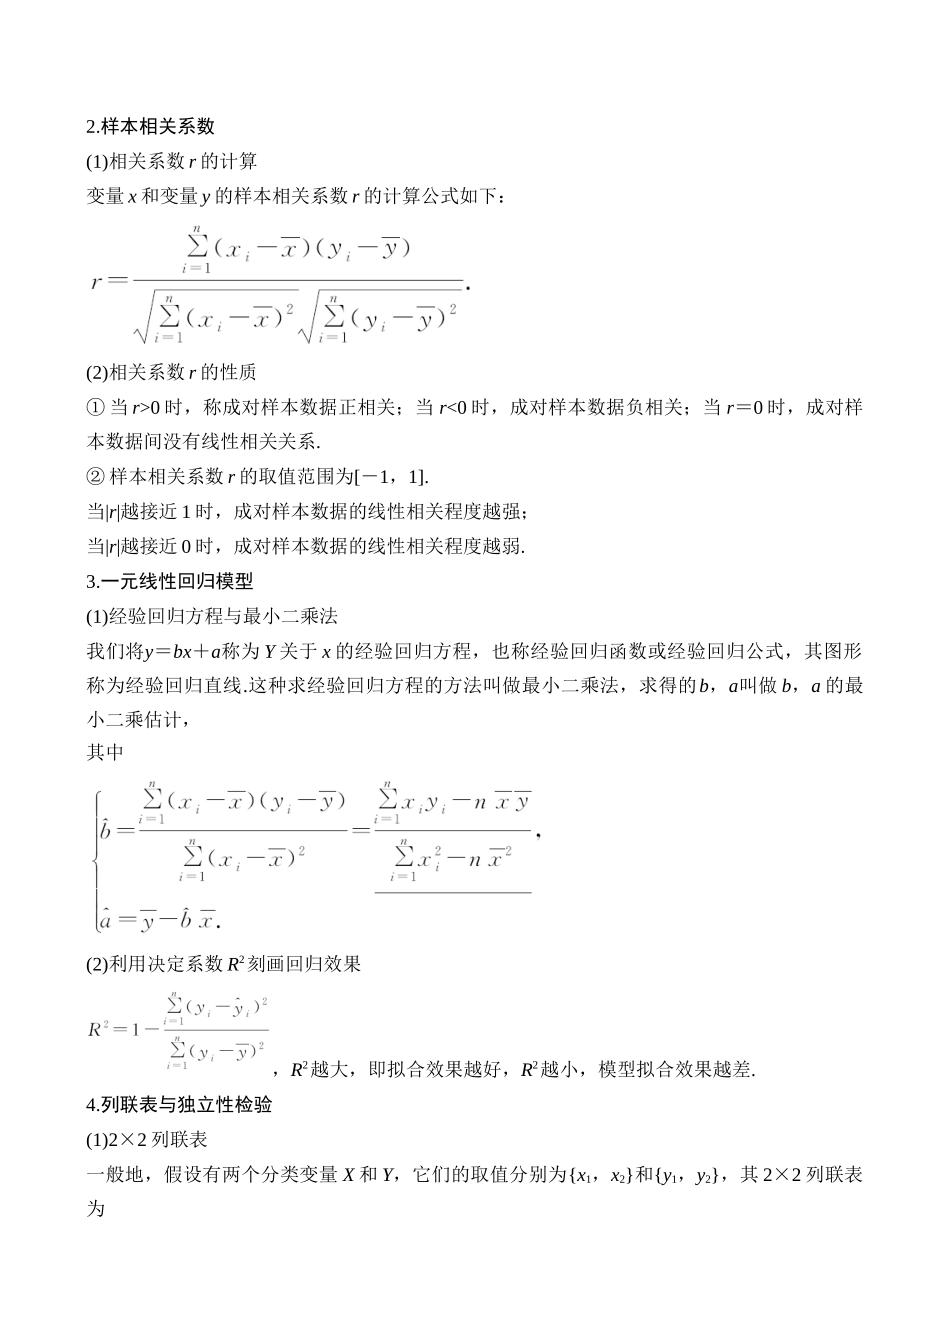 2.样本相关系数
(1)相关系数 r 的计算
变量 x 和变量 y 的样本相关系数 r 的计算公式如下：
r＝\frac{\sum_{i=1}^{n}(x_i-\overline{x})(y_i-\overline{y})}{\sqrt{\sum_{i=1}^{n}(x_i-\overline{x})^2}\sqrt{\sum_{i=1}^{n}(y_i-\overline{y})^2}}.
(2)相关系数 r 的性质
① 当 r>0 时，称成对样本数据正相关；当 r<0 时，成对样本数据负相关；当 r＝0 时，成对样
本数据间没有线性相关关系.
② 样本相关系数 r 的取值范围为[－1，1].
当|r|越接近 1 时，成对样本数据的线性相关程度越强；
当|r|越接近 0 时，成对样本数据的线性相关程度越弱.
3.一元线性回归模型
(1)经验回归方程与最小二乘法
我们将y＝bx＋a称为 Y 关于 x 的经验回归方程，也称经验回归函数或经验回归公式，其图形
称为经验回归直线.这种求经验回归方程的方法叫做最小二乘法，求得的b，a叫做 b，a 的最
小二乘估计，
其中
\hat{b}＝\frac{\sum_{i=1}^{n}(x_i-\overline{x})(y_i-\overline{y})}{\sum_{i=1}^{n}(x_i-\overline{x})^2}＝\frac{\sum_{i=1}^{n}x_iy_i-n\overline{x}\,\overline{y}}{\sum_{i=1}^{n}x_i^2-n\overline{x}^2},
\hat{a}＝\overline{y}-\hat{b}\,\overline{x}.
(2)利用决定系数 R²刻画回归效果
R²＝1－\frac{\sum_{i=1}^{n}(y_i-\hat{y}_i)^2}{\sum_{i=1}^{n}(y_i-\overline{y})^2}，R²越大，即拟合效果越好，R²越小，模型拟合效果越差.
4.列联表与独立性检验
(1)2×2 列联表
一般地，假设有两个分类变量 X 和 Y，它们的取值分别为{x₁，x₂}和{y₁，y₂}，其 2×2 列联表
为